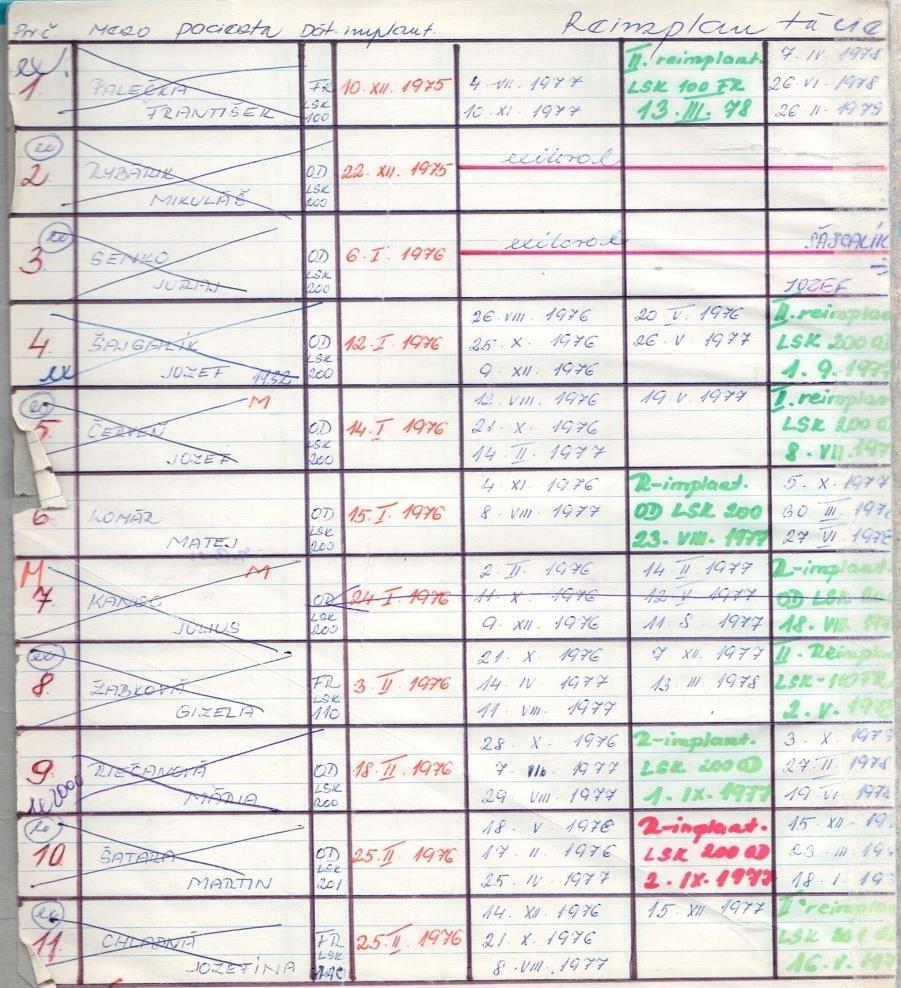 Por.č. Meno pacienta Dát. implant. Reimplantácie
ex 1. PALEČKA FRANTIŠEK FR LSK 100 10. XII. 1975
4. VII. 1977
10. XI. 1977
II. reimplant.
LSK 100 FR
13. III. 78
7. IV 1978
26. VI. 1978
26. II. 1979
ex 2. RYBÁRIK MIKULÁŠ OD LSK 200 22. XII. 1975
exitoval
ex 3. SENKO OD LSK 200 6. I. 1976
exitoval
JOZEF
4. ŠAJGALÍK JOZEF 1932 OD LSK 200 12. I. 1976
ex
26. VIII. 1976
25. X. 1976
9. XII. 1976
20 V. 1976
26. V. 1977
II. reimplan
LSK 200 O
1. 9. 197
ex 5. ČERVEŇ JOZEF M OD LSK 200 14. I. 1976
12. VIII. 1976
21. X. 1976
14. II. 1977
19. V. 1977
I. reimplan
LSK 200 O
8. VII. 197
6. KOMÁR MATEJ OD LSK 200 15. I. 1976
4. XI. 1976
8. VIII. 1977
R-implant.
OD LSK 200
23. VIII. 1977
5. X. 1977
30 III. 197
27. VI. 197
M 7. JÚLIUS M OD LSK 200 24. I. 1976
2. II. 1976
11. X. 1976
9. XII. 1976
14 II. 1977
12. V 1977
11. 8. 1977
R-implant.
OD LSK
18. VIII
ex 8. ŽABKOVÁ GIZELA FR LSK 110 3. II. 1976
21. X. 1976
14. IV 1977
11. VIII. 1977
7 XII. 1977
13. III. 1978
II - Reimplan
LSK - 110 FR
2. V.
9. MÁRIA OD LSK 200 18. II. 1976
ex 2000
28. X. 1976
7. 1977
29. VIII. 1977
R-implant.
LSK 200 OD
1. IX. 1977
3. X. 197
27. II. 1978
19 VI. 197
ex 10. ŠATARA MARTIN OD LSK 201 25. II. 1976
18. V 1976
17. II 1976
25. IV 1977
R-implant.
LSK 200 OD
2. IX. 1977
15. XII
23. III. 19
18. I. 19
ex 11. CHLADNÁ JOZEFÍNA FR LSK 25. II. 1976
14. XII. 1976
21. X. 1976
8. VIII. 1977
15. XII 1977
II reimplan
LSK
16. V. 197